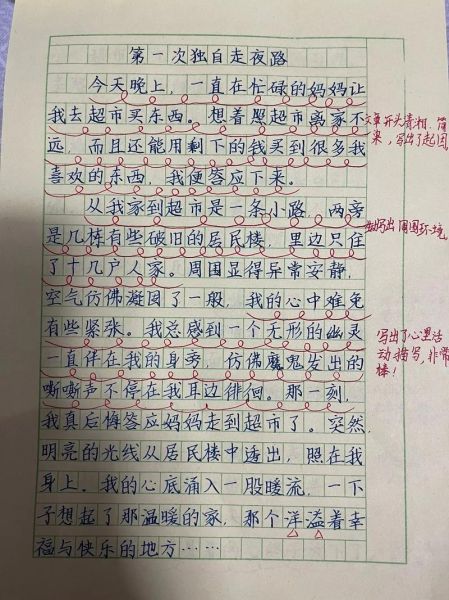 第一次独自走夜路
今天晚上，一直在忙碌的妈妈让
我去超市买东西。想着那超市离家不
远，而且还能用剩下的钱买到很多我
喜欢的东西，我便答应下来。
从我家到超市是一条小路，两旁
是几栋有些破旧的居民楼，里边只住
了十几户人家。周围显得异常安静，
空气仿佛凝固了一般，我的心中难免
有些紧张。我总感到一个无形的幽灵
一直伴在我的身旁，仿佛魔鬼发出的
嘶嘶声不停在我耳边徘徊。那一刻，
我真后悔答应妈妈走到超市了。突然，
明亮的光线从居民楼中透出，照在我
身上。我的心底涌入一股暖流，一下
子想起了那温暖的家，那个洋溢着幸
福与快乐的地方……
开头
来，写出了起因
写出周围环境
写出了心里活
动描写，非常
棒！